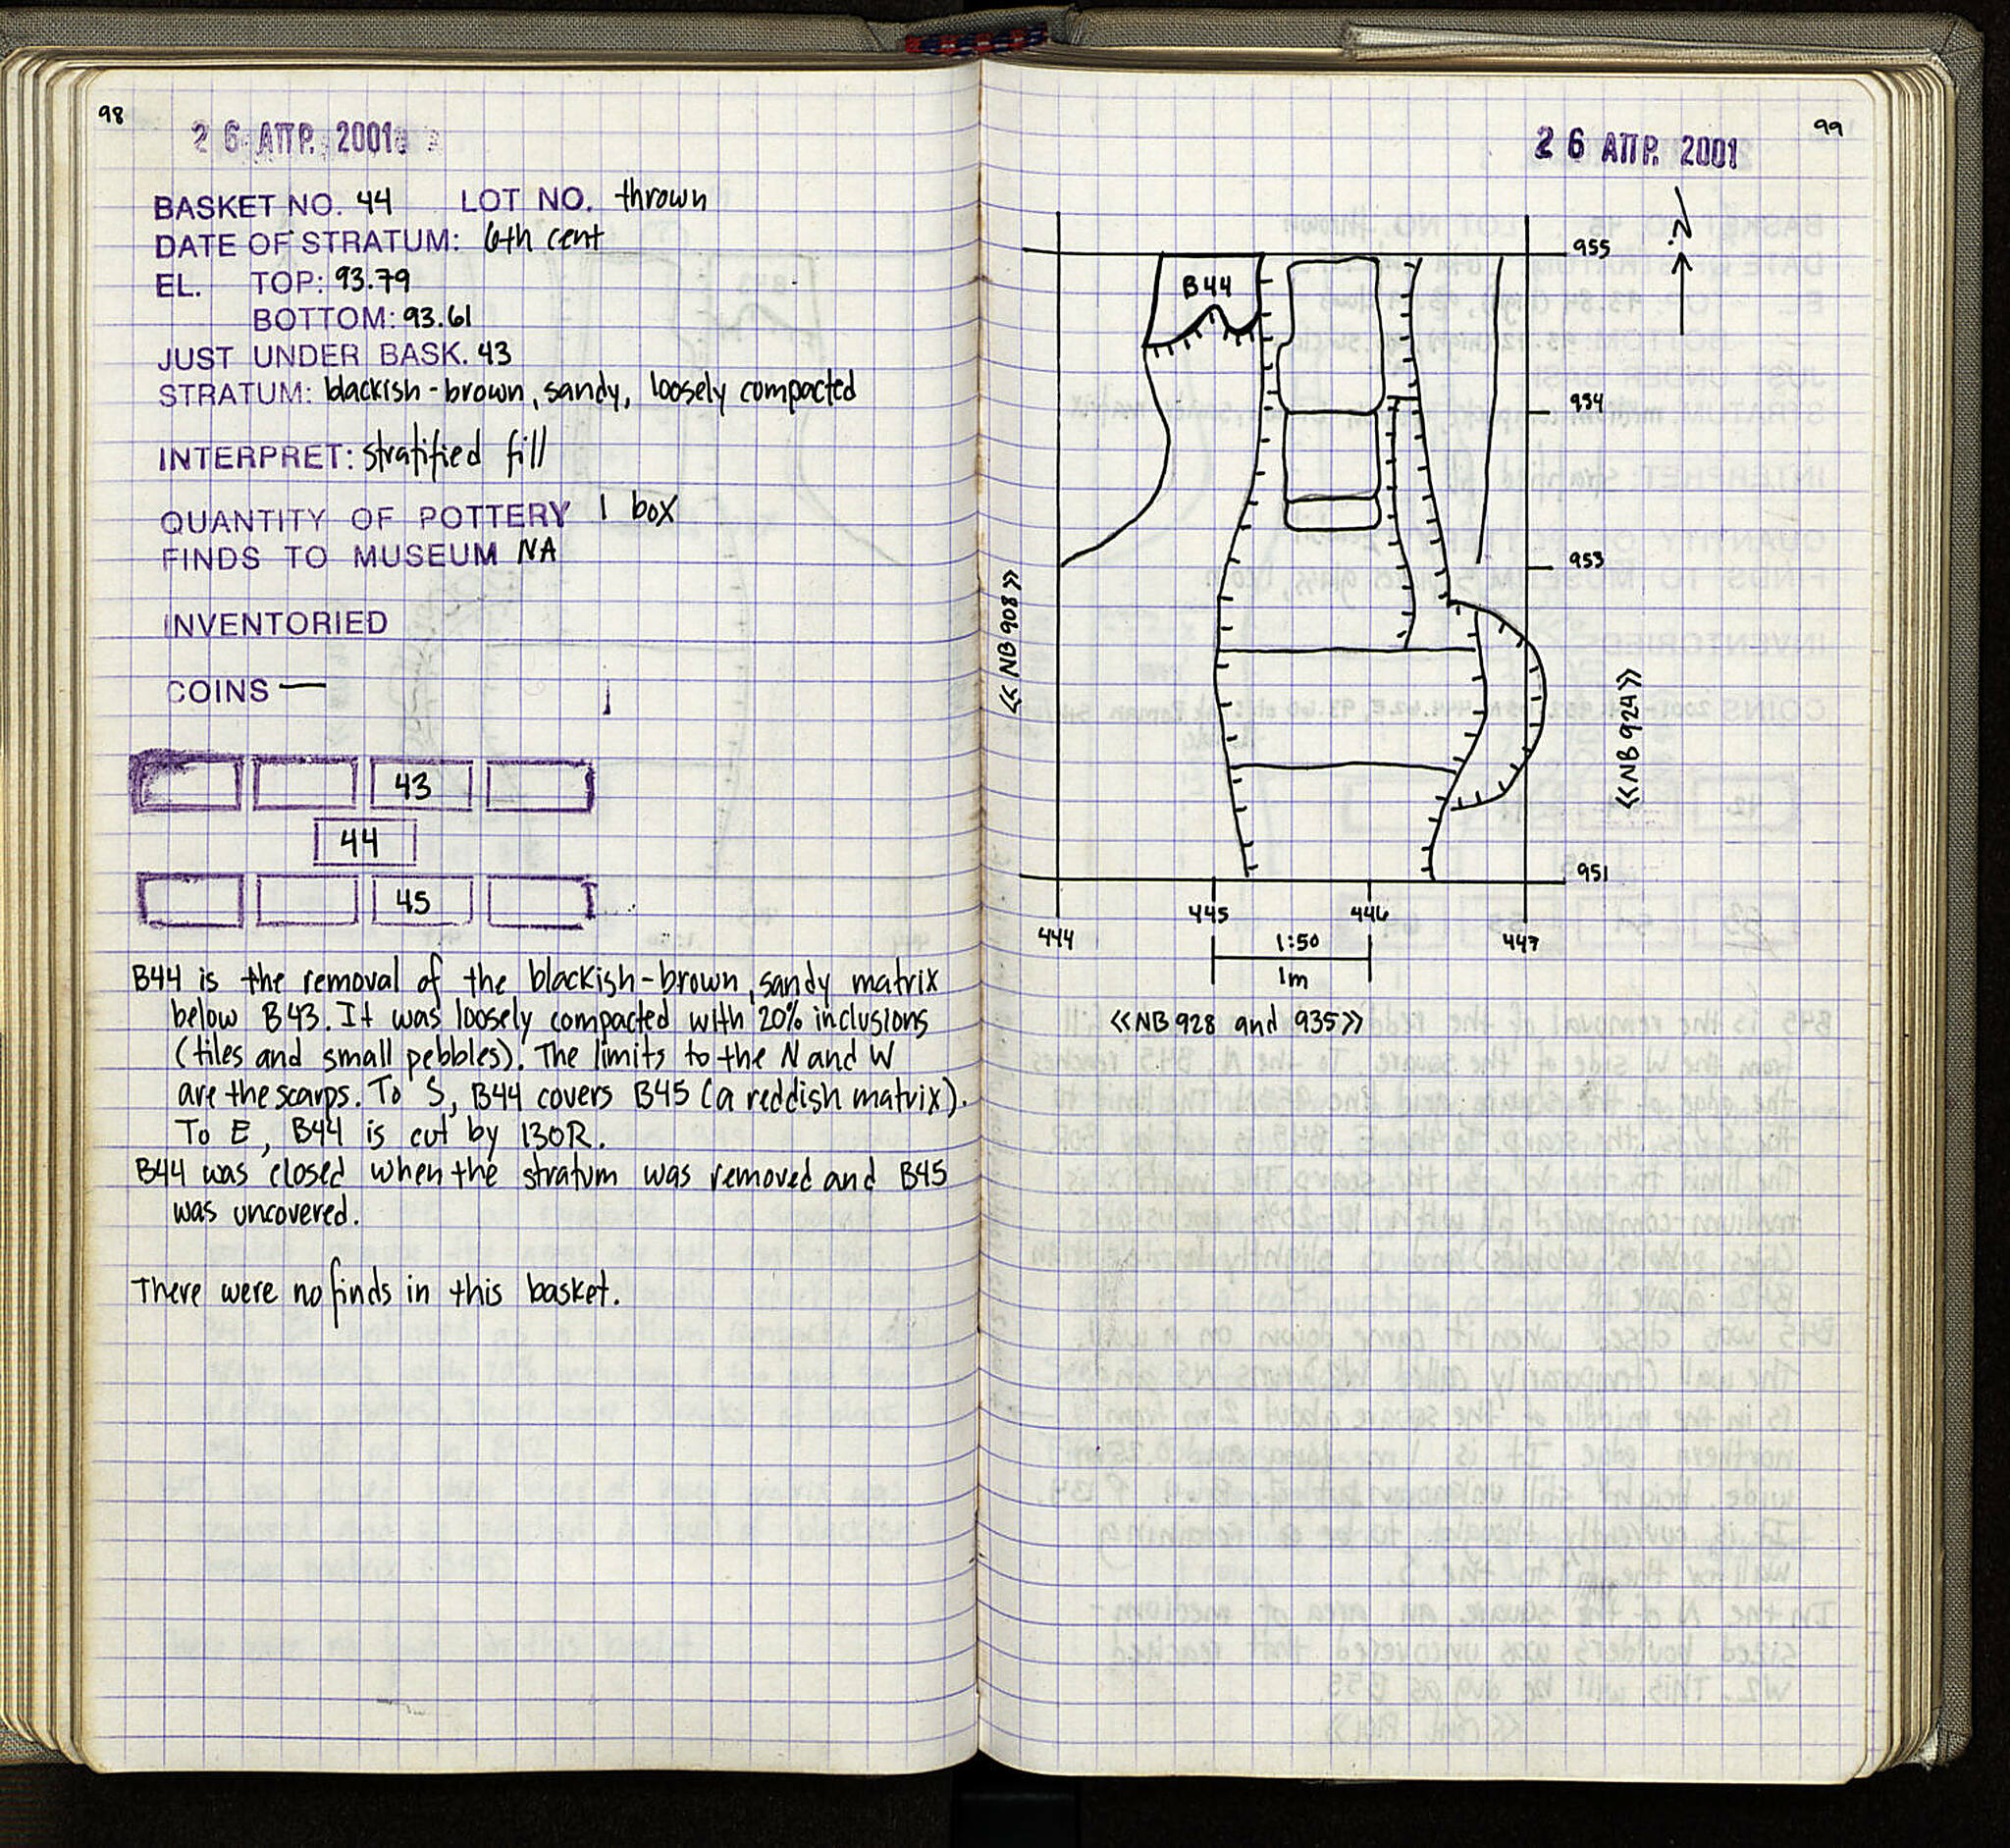 98
26 ΑΠΡ. 2001
BASKET NO. 44 LOT NO. thrown
DATE OF STRATUM: 6th cent
EL. TOP: 93.79
BOTTOM: 93.61
JUST UNDER BASK. 43
STRATUM: blackish-brown, sandy, loosely compacted
INTERPRET: stratified fill
QUANTITY OF POTTERY 1 box
FINDS TO MUSEUM NA
INVENTORIED
COINS —
43
44
45
B44 is the removal of the blackish-brown, sandy matrix
below B43. It was loosely compacted with 20% inclusions
(tiles and small pebbles). The limits to the N and W
are the scarps. To S, B44 covers B45 (a reddish matrix).
To E, B44 is cut by 130R.
B44 was closed when the stratum was removed and B45
was uncovered.
There were no finds in this basket.
99
26 ΑΠΡ. 2001
N
955
B44
954
953
<< NB 908 >>
<<NB 924>>
951
445 446
444 1:50 447
1m
<<NB 928 and 935>>